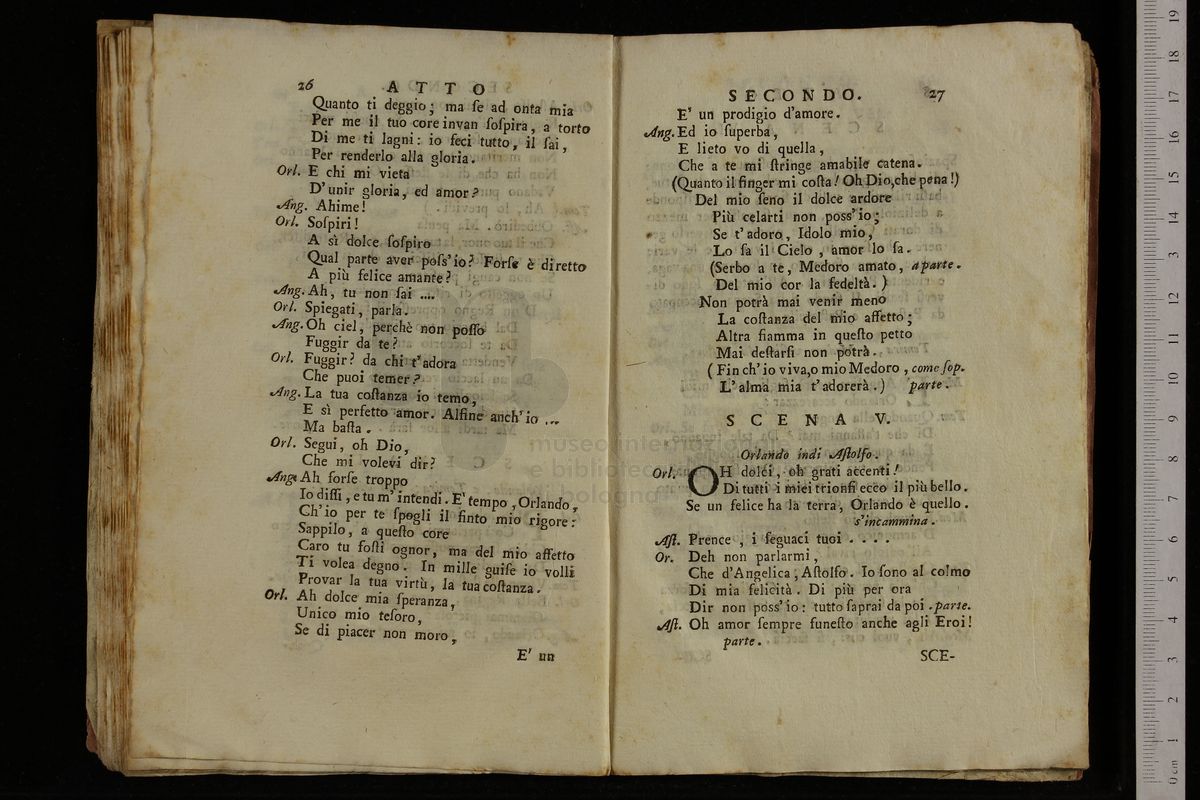 26 ATTO
Quanto ti deggio; ma ſe ad onta mia
Per me il tuo core invan ſoſpira, a torto
Di me ti lagni: io feci tutto, il ſai,
Per renderlo alla gloria.
Orl. E chi mi vieta
D'unir gloria, ed amor?
Ang. Ahime!
Orl. Soſpiri!
A sì dolce ſoſpiro
Qual parte aver poſs'io? Forſe è diretto
A più felice amante?
Ang. Ah, tu non ſai ....
Orl. Spiegati, parla.
Ang. Oh ciel, perchè non poſſo
Fuggir da te?
Orl. Fuggir? da chi t'adora
Che puoi temer?
Ang. La tua coſtanza io temo,
E sì perfetto amor. Alfine anch'io ...
Ma baſta.
Orl. Segui, oh Dio,
Che mi volevi dir?
Ang. Ah forſe troppo
Io diſſi, e tu m'intendi. E' tempo, Orlando,
Ch'io per te ſpogli il finto mio rigore:
Sappilo, a queſto core
Caro tu foſti ognor, ma del mio affetto
Ti volea degno. In mille guiſe io volli
Provar la tua virtù, la tua coſtanza.
Orl. Ah dolce mia ſperanza,
Unico mio teſoro,
Se di piacer non moro,
E' un
SECONDO. 27
E' un prodigio d'amore.
Ang. Ed io ſuperba,
E lieto vo di quella,
Che a te mi ſtringe amabile catena.
(Quanto il finger mi coſta! Oh Dio, che pena!)
Del mio ſeno il dolce ardore
Più celarti non poss'io;
Se t'adoro, Idolo mio,
Lo ſa il Cielo, amor lo ſa.
(Serbo a te, Medoro amato, a parte.
Del mio cor la fedeltà.)
Non potrà mai venir meno
La coſtanza del mio affetto;
Altra fiamma in queſto petto
Mai deſtarſi non potrà.
(Fin ch'io viva, o mio Medoro, come ſop.
L'alma mia t'adorerà.) parte.
SCENA V.
Orlando indi Aſtolfo.
Orl. OH dolci, oh grati accenti!
Di tutti i miei trionfi ecco il più bello.
Se un felice ha la terra, Orlando è quello.
s'incammina.
Aſt. Prence, i ſeguaci tuoi ....
Or. Deh non parlarmi,
Che d'Angelica, Aſtolfo. Io ſono al colmo
Di mia felicità. Di più per ora
Dir non poss'io: tutto ſaprai da poi. parte.
Aſt. Oh amor ſempre funeſto anche agli Eroi!
parte.
SCE-